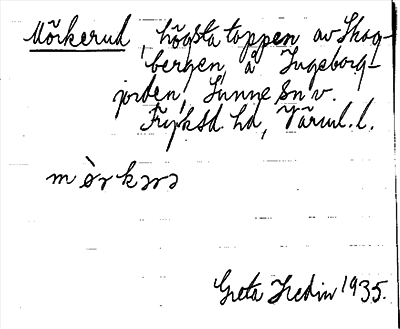 Mörkerud, högsta toppen av Skog-
bergen, å Ingeborg-
jorden, Sunne sn v.
Fryksd. hd, Värml. l.
mὸrkərə
Greta Hedin 1935.